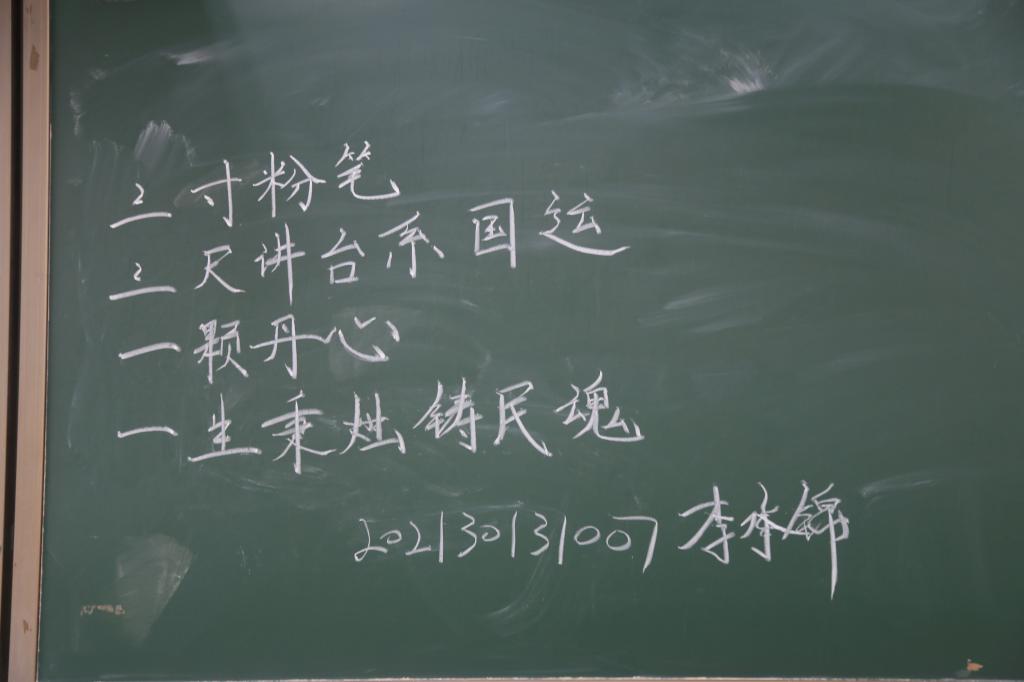 三寸粉笔
三尺讲台系国运
一颗丹心
一生秉烛铸民魂
202130131007 李承锦